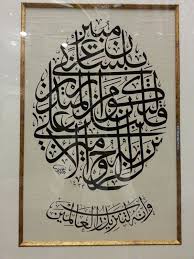 وإنه لتنزيل رب العالمين
نزل به الروح الأمين على
قلبك لتكون من المنذرين
بلسان عربي مبين